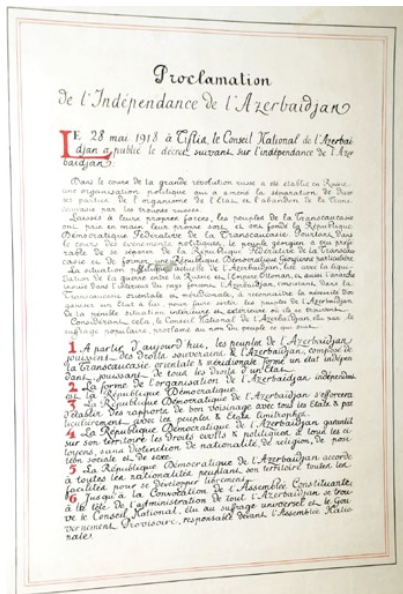 Proclamation
de l'Indépendance de l'Azerbaïdjan
LE 28 mai 1918 à Tiflia, le Conseil National de l'Azerbaï-
djan a publié le décret suivant sur l'indépendance de l'Azer
baïdjan:
Dans le cours de la grande révolution russe a été établie en Russie
une organisation politique qui a amené la séparation de diver
ses parties de l'organisme de l'État et l'abandon de la Trans
caucasie par les troupes russes.
Laissés à leurs propres forces, les peuples de la Transcaucasie
ont pris en main leur propre sort et ont fondé la République
Démocratique Fédérative de la Transcaucasie. Pourtant dans
le cours des événements politiques, le peuple géorgien a cru préfé
rable de se séparer de la République Fédérative de la Transcau
casie et de former une République Démocratique Géorgienne particulière
La situation politique actuelle de l'Azerbaïdjan, liée avec la liqui-
dation de la guerre entre la Russie et l'Empire Ottoman, et aussi l'anarchie
inouïe dans l'intérieur du pays forcent l'Azerbaïdjan, consistant dans la
Transcaucasie orientale et méridionale, à reconnaître la nécessité d'or
ganiser un État à lui pour faire sortir les peuples de l'Azerbaïdjan
de la pénible situation intérieure et extérieure où ils se trouvent.
Considérant cela, le Conseil National de l'Azerbaïdjan, élu par le
suffrage populaire, proclame au nom du peuple ce qui suit:
1 A partir d'aujourd'hui, les peuples de l'Azerbaïdjan
jouissent des droits souverains & l'Azerbaïdjan, composé de
la Transcaucasie orientale & méridionale forme un état indépen
dant jouissant de tout les droits d'un État.
2 La forme de l'organisation de l'Azerbaïdjan indépendant
est la République Démocratique.
3 La République Démocratique de l'Azerbaïdjan s'efforcera
d'établir des rapports de bon voisinage avec tous les États & par
ticulièrement avec les peuples & États limitrophes.
4 La République Démocratique de l'Azerbaïdjan garantit
sur son territoire les droits civils & politiques à tous les ci
toyens, sans distinction de nationalité, de religion, de posi
tion sociale et de sexe.
5 La République Démocratique de l'Azerbaïdjan accorde
à toutes les nationalités peuplant son territoire toutes les
facilités pour se développer librement.
6 Jusqu'à la Convocation de l'Assemblée Constituante,
à la tête de l'administration de tout l'Azerbaïdjan se trou
ve le Conseil National, élu au suffrage universel et le Gou
vernement Provisoire, responsable devant l'Assemblée Natio
nale.